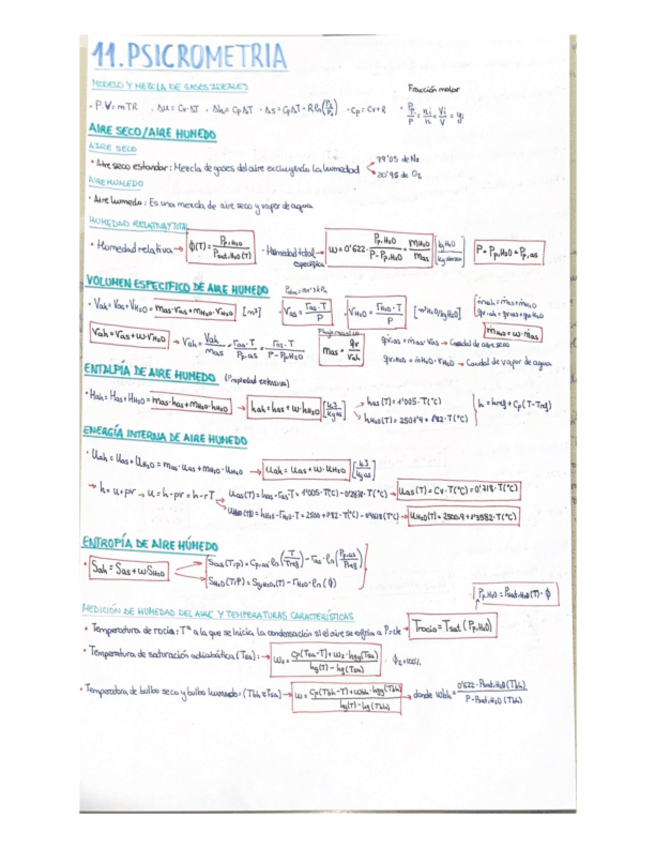 11. PSICROMETRIA
MODELO Y MEZCLA DE GASES IDEALES
Fracción molar
· P·V = mTR · Δu = Cv·ΔT · Δh = CpΔT · Δs = CpΔT - R ln(P₂/P₁) · Cp = Cv + R · Pp/P = ni/n = Vi/V = yi
AIRE SECO/AIRE HUMEDO
AIRE SECO
· Aire seco estandar: Mezcla de gases del aire excluyendo la humedad
79'05 de N₂
20'95 de O₂
AIRE HUMEDO
· Aire humedo: Es una mezcla de aire seco y vapor de agua
HUMEDAD RELATIVA Y TOTAL
· Humedad relativa → ϕ(T) = Pp,H₂O / Psat,H₂O(T) · Humedad total especifica → ω = 0'622 · Pp,H₂O / P - Pp,H₂O = mH₂O / mas [kg H₂O / kg] P = Pp,H₂O + Pp,as
VOLUMEN ESPECIFICO DE AIRE HUMEDO
· Vah = Vas + VH₂O = mas·vas + mH₂O·vH₂O [m³] · Vas = ras·T / P · VH₂O = rH₂O·T / P [m³H₂O/kgH₂O] ṁah = ṁas + ṁH₂O
qv,ah = qv,as + qv,H₂O
ṁH₂O = ω·ṁas
Vah = Vas + ω·VH₂O → Vah = Vah / mas = ras·T / Pp,as = ras·T / P - Pp,H₂O ṁas = qv / Vah qv,as = ṁas·Vas → Caudal de aire seco
qv,H₂O = ṁH₂O·VH₂O → Caudal de vapor de agua
ENTALPÍA DE AIRE HUMEDO (Propiedad extensiva)
· Hah = Has + HH₂O = mas·has + mH₂O·hH₂O → hah = has + ω·hH₂O [kJ / kgas] → has(T) = 1'005·T(°C) h = href + Cp(T - Tref)
→ hH₂O(T) = 2501'4 + 1'82·T(°C)
ENERGÍA INTERNA DE AIRE HUMEDO
· Uah = Uas + UH₂O = mas·uas + mH₂O·uH₂O → uah = uas + ω·uH₂O [kJ / kgas]
→ h = u + pv → u = h - pv = h - rT → uas(T) = has - ras·T = 1'005·T(°C) - 0'287·T(°C) → uas(T) = Cv·T(°C) = 0'718·T(°C)
→ uH₂O(T) = hH₂O - rH₂O·T = → uH₂O(T) =
ENTROPÍA DE AIRE HÚMEDO
· Sah = Sas + ωSH₂O
Sas(T,p) = Cp,as ln(T / Tref) - ras·ln(Pp,as / Pref)
SH₂O(T,P) = Sg,H₂O(T) - rH₂O·ln(ϕ)
Pp,H₂O = Psat,H₂O(T)·ϕ
MEDICIÓN DE HUMEDAD DEL AIRE Y TEMPERATURAS CARACTERÍSTICAS
· Temperatura de rocio: Tª a la que se inicia la condensación si el aire se enfria a P=cte → Trocio = Tsat(Pp,H₂O)
· Temperatura de saturación adiabática (Tsa): → = Cp(Tsa - T) + ω₂·hfg(Tsa) / hg(T) - hf(Tsa) · ϕ₂ = 100%
· Temperatura de bulbo seco y bulbo humedo: (Tbh ≈ Tsa) → ω = Cp(Tbh - T) + ωbh·hfg(Tbh) / hg(T) - hf(Tbh) → donde ωbh = 0'622·Psat,H₂O(Tbh) / P - Psat,H₂O(Tbh)